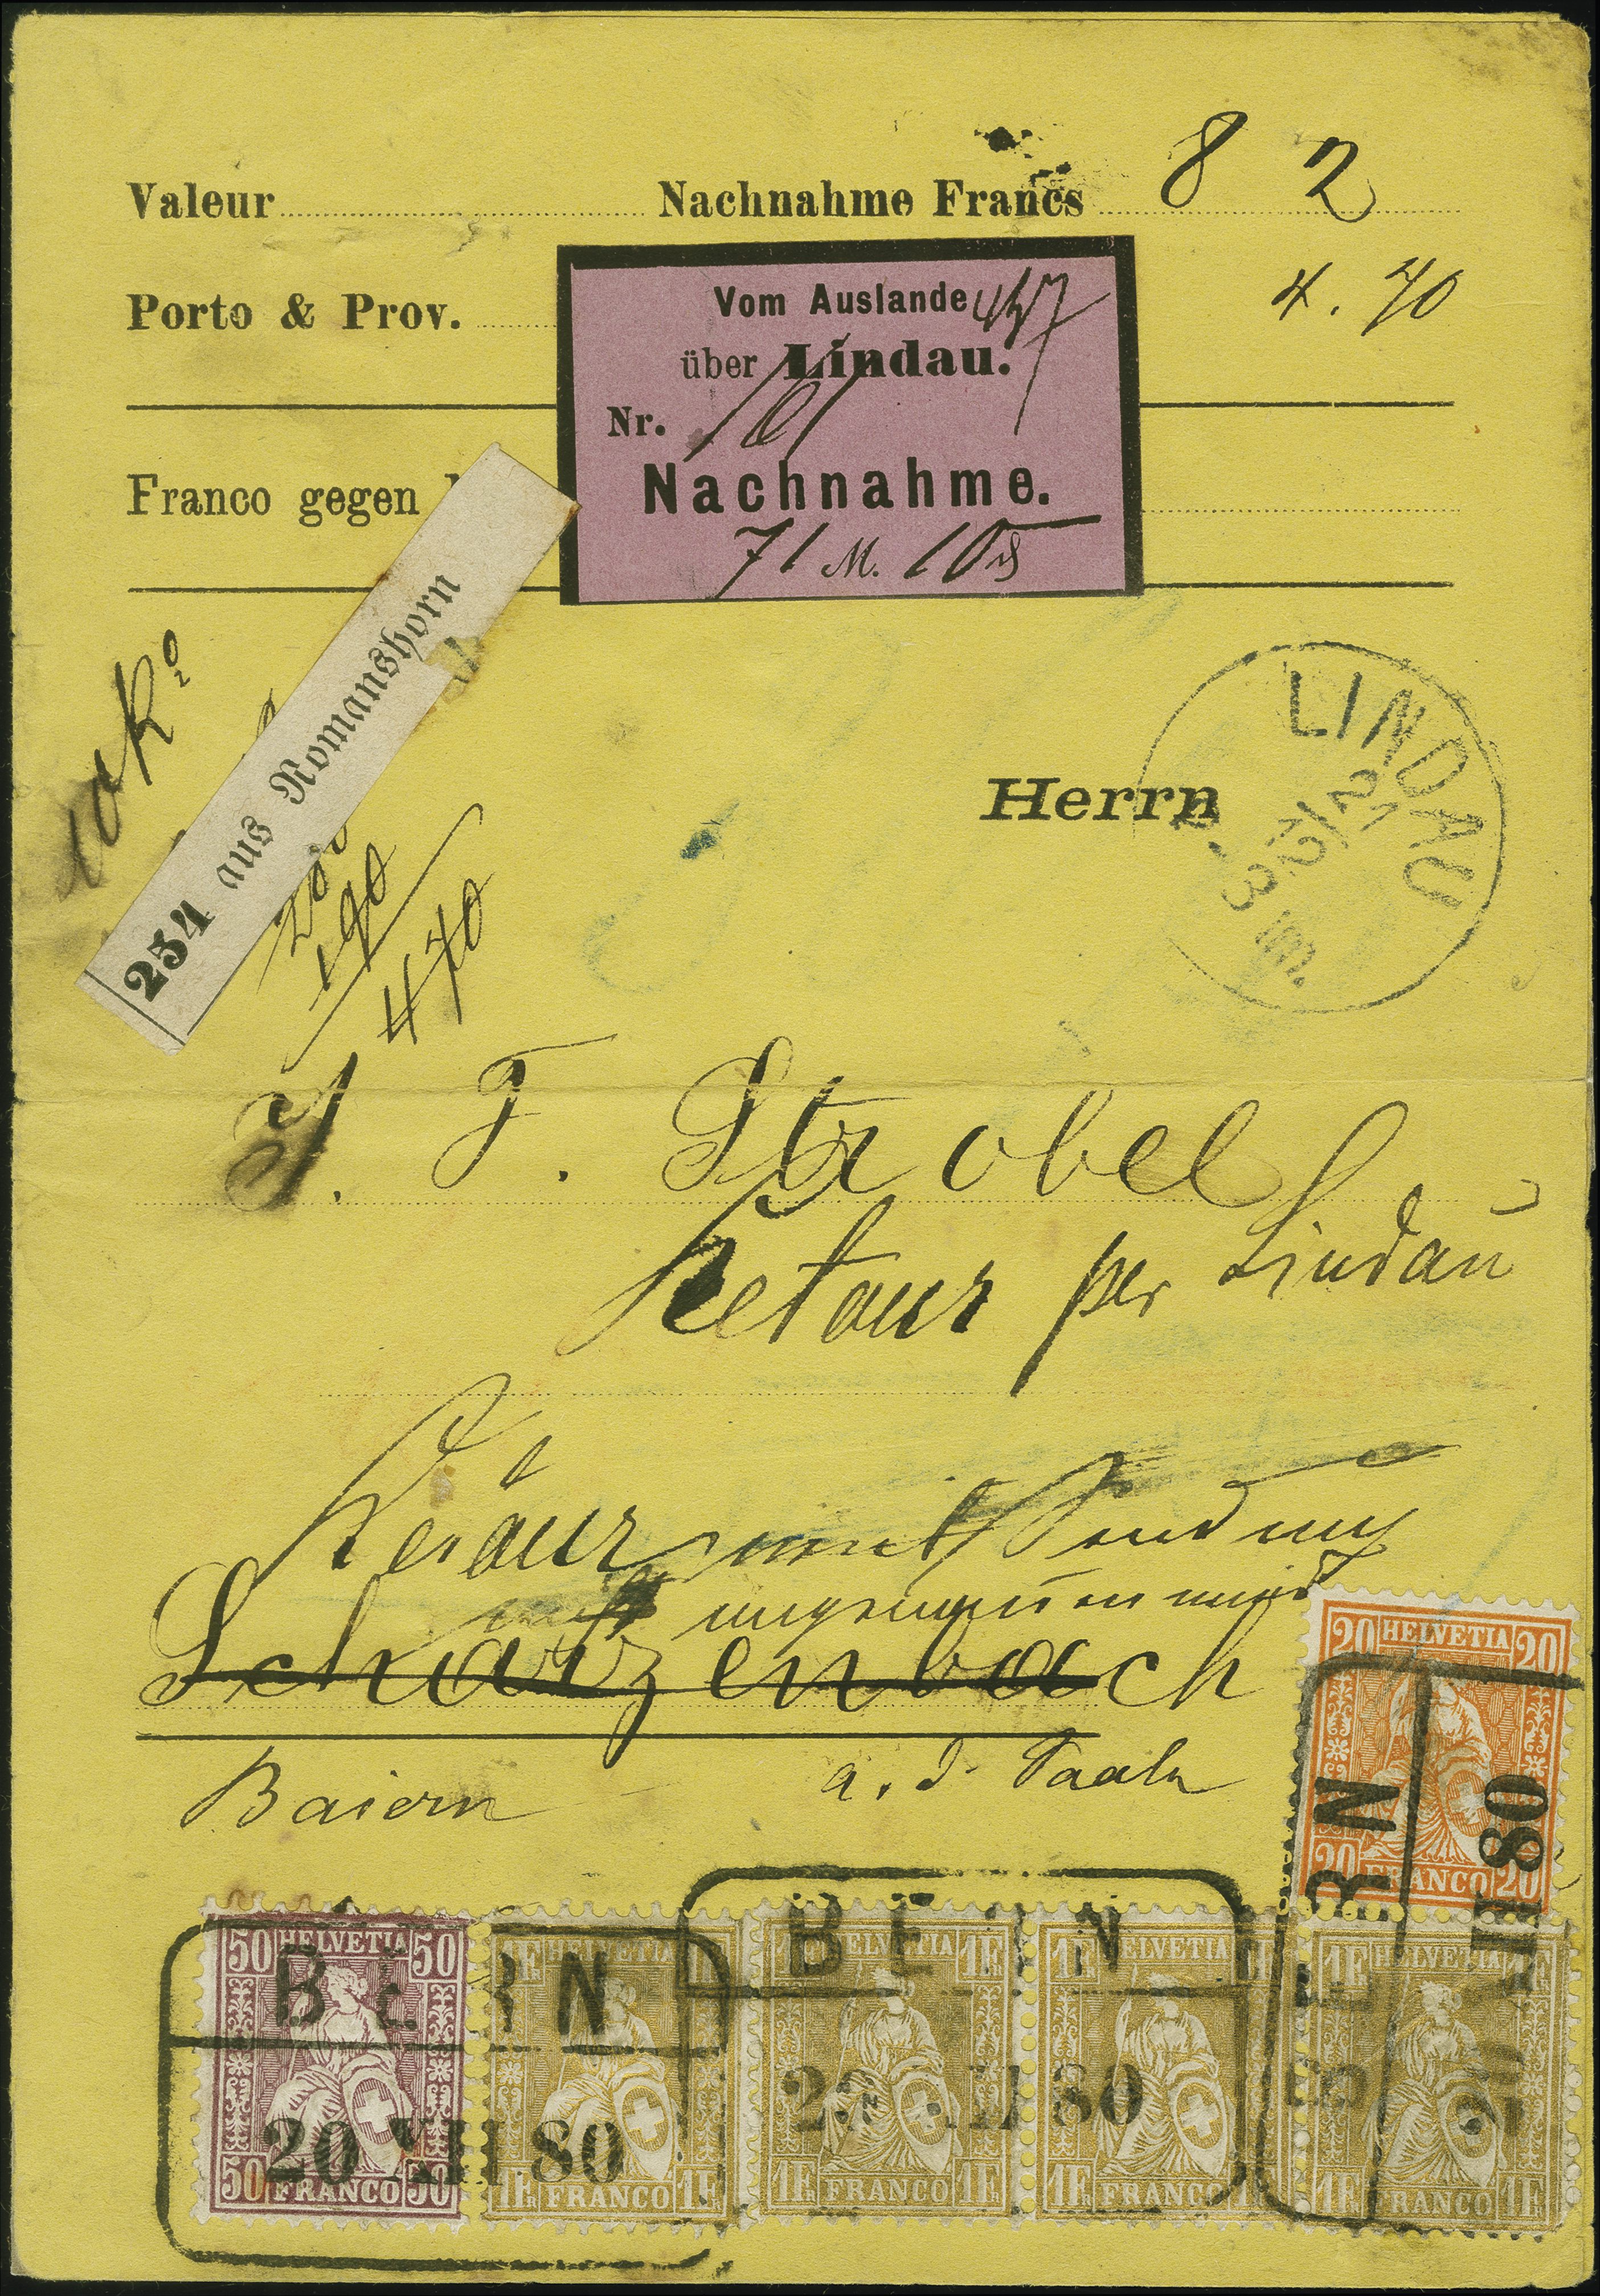 Valeur Nachnahme Francs 8 2
Porto & Prov. 4. 70
Vom Auslande
über Lindau.
Nr. 101
Nachnahme.
71 M. 10
Franco gegen
254 aus Romanshorn
190
470
Herrn
LINDAU
21/12
3
J. F. Strobel
Retour per Lindau
Retour
Schwarzenbach
Baiern a. d. Saale
20 HELVETIA 20
20 FRANCO 20
50 HELVETIA 50
50 FRANCO 50
1Fr HELVETIA 1Fr
1Fr FRANCO 1Fr
1Fr HELVETIA 1Fr
1Fr FRANCO 1Fr
1Fr HELVETIA 1Fr
1Fr FRANCO 1Fr
1Fr HELVETIA 1Fr
1Fr FRANCO 1Fr
BERN
20 XII 80
BERN
20 XII 80
BERN
20 XII 80